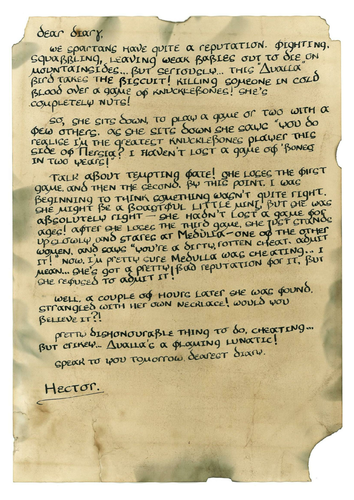 dear diary,
we spartans have quite a reputation. fighting,
squabbling, leaving weak babies out to die on
mountainsides... but seriously... this Avalla
bird takes the biscuit! killing someone in cold
blood over a game of knucklebones! she's
completely nuts!
So, she sits down, to play a game or two with a
few others. as she sits down she says "you do
realise I'm the greatest knucklebones player this
side of Persia? I haven't lost a game of 'bones
in two years!"
Talk about tempting fate! she loses the first
game, and then the second. by this point, I was
beginning to think something wasn't quite right.
she might be a boastful little minx, but she was
absolutely right - she hadn't lost a game for
ages! after she loses the third game, she just stands
up slowly, and stares at Medulla - one of the other
women, and says "you're a dirty, rotten cheat. admit
it!" Now, I'm pretty sure Medulla was cheating... I
mean... she's got a pretty bad reputation for it, but
she refused to admit it!
Well, a couple of hours later she was found,
strangled with her own necklace! would you
believe it?!
Pretty dishonourable thing to do, cheating...
but crikey... Avalla's a flaming lunatic!
Speak to you tomorrow, dearest diary.
Hector.